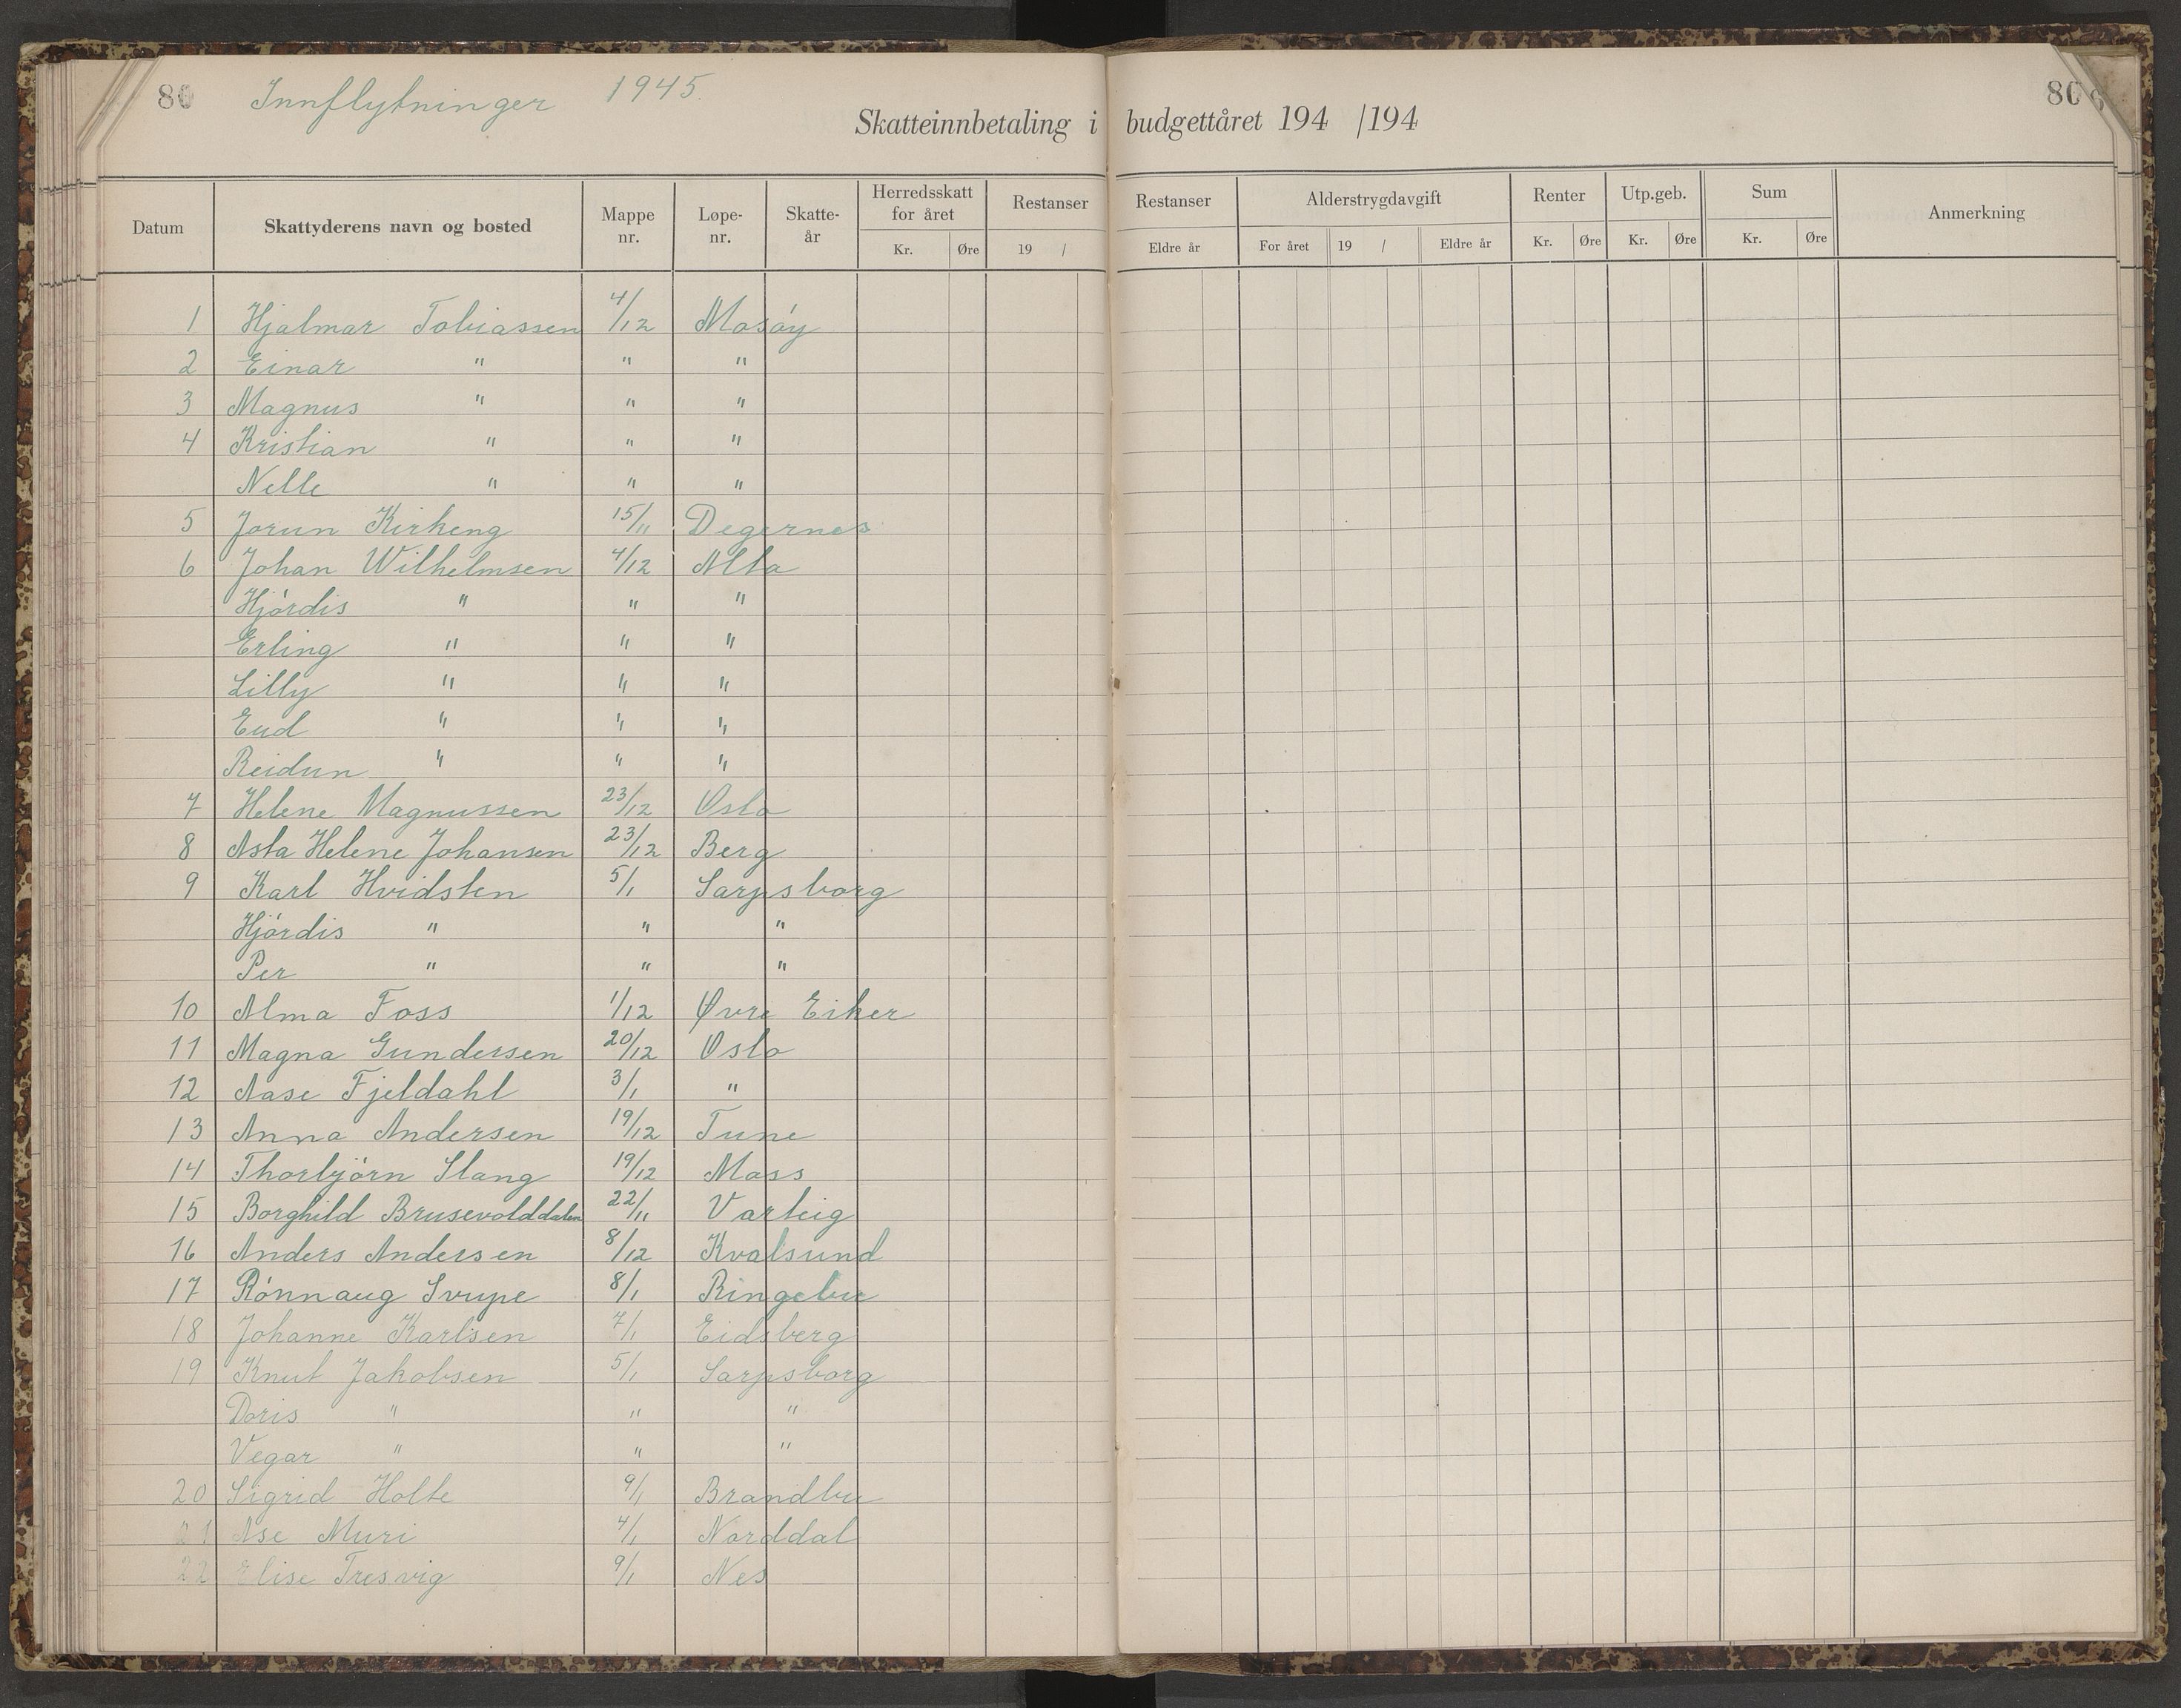 80 Innflytninger 1945. 80
Skatteinnbetaling i budgettåret 194 /194
Datum Skattyderens navn og bosted Mappe nr. Løpe-nr. Skatte-år Herredsskatt for året Kr. Øre Restanser 19 / Restanser Eldre år Alderstrygdavgift For året 19 / Eldre år Renter Kr. Øre Utp.geb. Kr. Øre Sum Kr. Øre Anmerkning
1 Hjalmar Tobiassen 4/12 Masøy
2 Einar " " "
3 Magnus " " "
4 Kristian " " "
Nelle " " "
5 Jorun Kirkeng 15/11 Degernes
6 Johan Wilhelmsen 4/12 Alta
Hjørdis " " "
Erling " " "
Lilly " " "
Eud " " "
Reidun " " "
7 Helene Magnussen 23/12 Oslo
8 Asta Helene Johansen 23/12 Berg
9 Karl Hvidsten 5/1 Sarpsborg
Hjørdis " " "
Per " " "
10 Alma Foss 1/12 Øvre Eiker
11 Magna Gundersen 20/12 Oslo
12 Aase Fjeldahl 3/1 "
13 Anna Andersen 19/12 Tune
14 Thorbjørn Slang 19/12 Moss
15 Borghild Brusevolddalen 22/11 Varteig
16 Anders Andersen 8/12 Kvalsund
17 Rønnaug Svupe 8/1 Ringebu
18 Johanne Karlsen 7/1 Eidsberg
19 Knut Jakobsen 5/1 Sarpsborg
Doris " " "
Vegar " " "
20 Sigrid Holte 9/1 Brandbu
21 Ase Muri 4/1 Norddal
22 Elise Tresvig 9/1 Nes